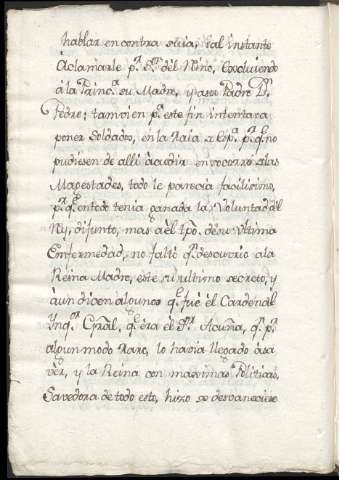 hablar en contra suia, i al instante
Aclamarle p.r S.r del Rno, Excluiendo
à la Princ.a su Madre, y a su Padre D.n
Pedro; tamvien p.a este fin intentava
poner Soldados, en la Raia a Esp.a p.a q.e no
pudiesen de alli acudir en socorro a las
Magestades, todo le parecia facilisimo,
p.r q.e en todo tenia ganada la Voluntad del
Rey difunto, mas à el tpõ. de su Vltima
Enfermedad, no faltò q.n descuvrio a la
Reina Madre, este su ultimo secreto, y
aun dicen algunos q.e fuè el Cardenal
Ynq.r Gräl, q.e èra el S.r Acuña, q.e p.r
algun modo Raro, lo havia llegado à sa
vèr, y la Reina con maximas Politicas,
Savedora de todo esto, hizo se desvaneciese